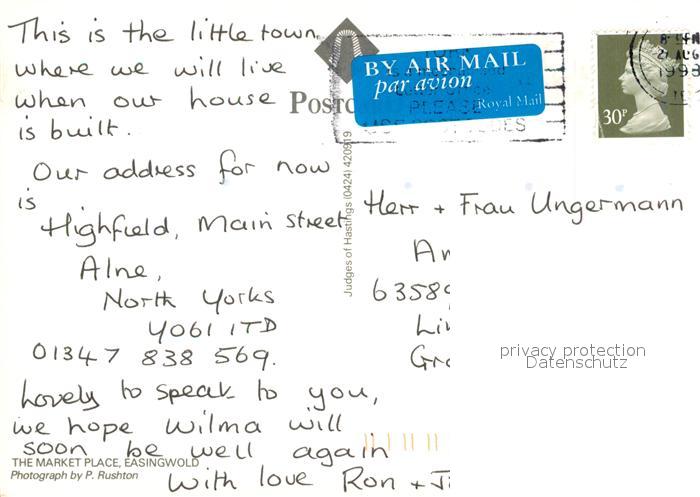 This is the little town
where we will live
when our house
is built.
Our address for now
is
Highfield, Main Street
Alne,
North Yorks
YO61 1TD
01347 838 569.
Lovely to speak to you,
we hope Wilma will
soon be well again
With love Ron +
THE MARKET PLACE, EASINGWOLD
Photograph by P. Rushton
Judges of Hastings (0424) 420919
BY AIR MAIL
par avion
Royal Mail
PLEASE
30P
1998
Herr + Frau Ungermann
63589
privacy protection
Datenschutz